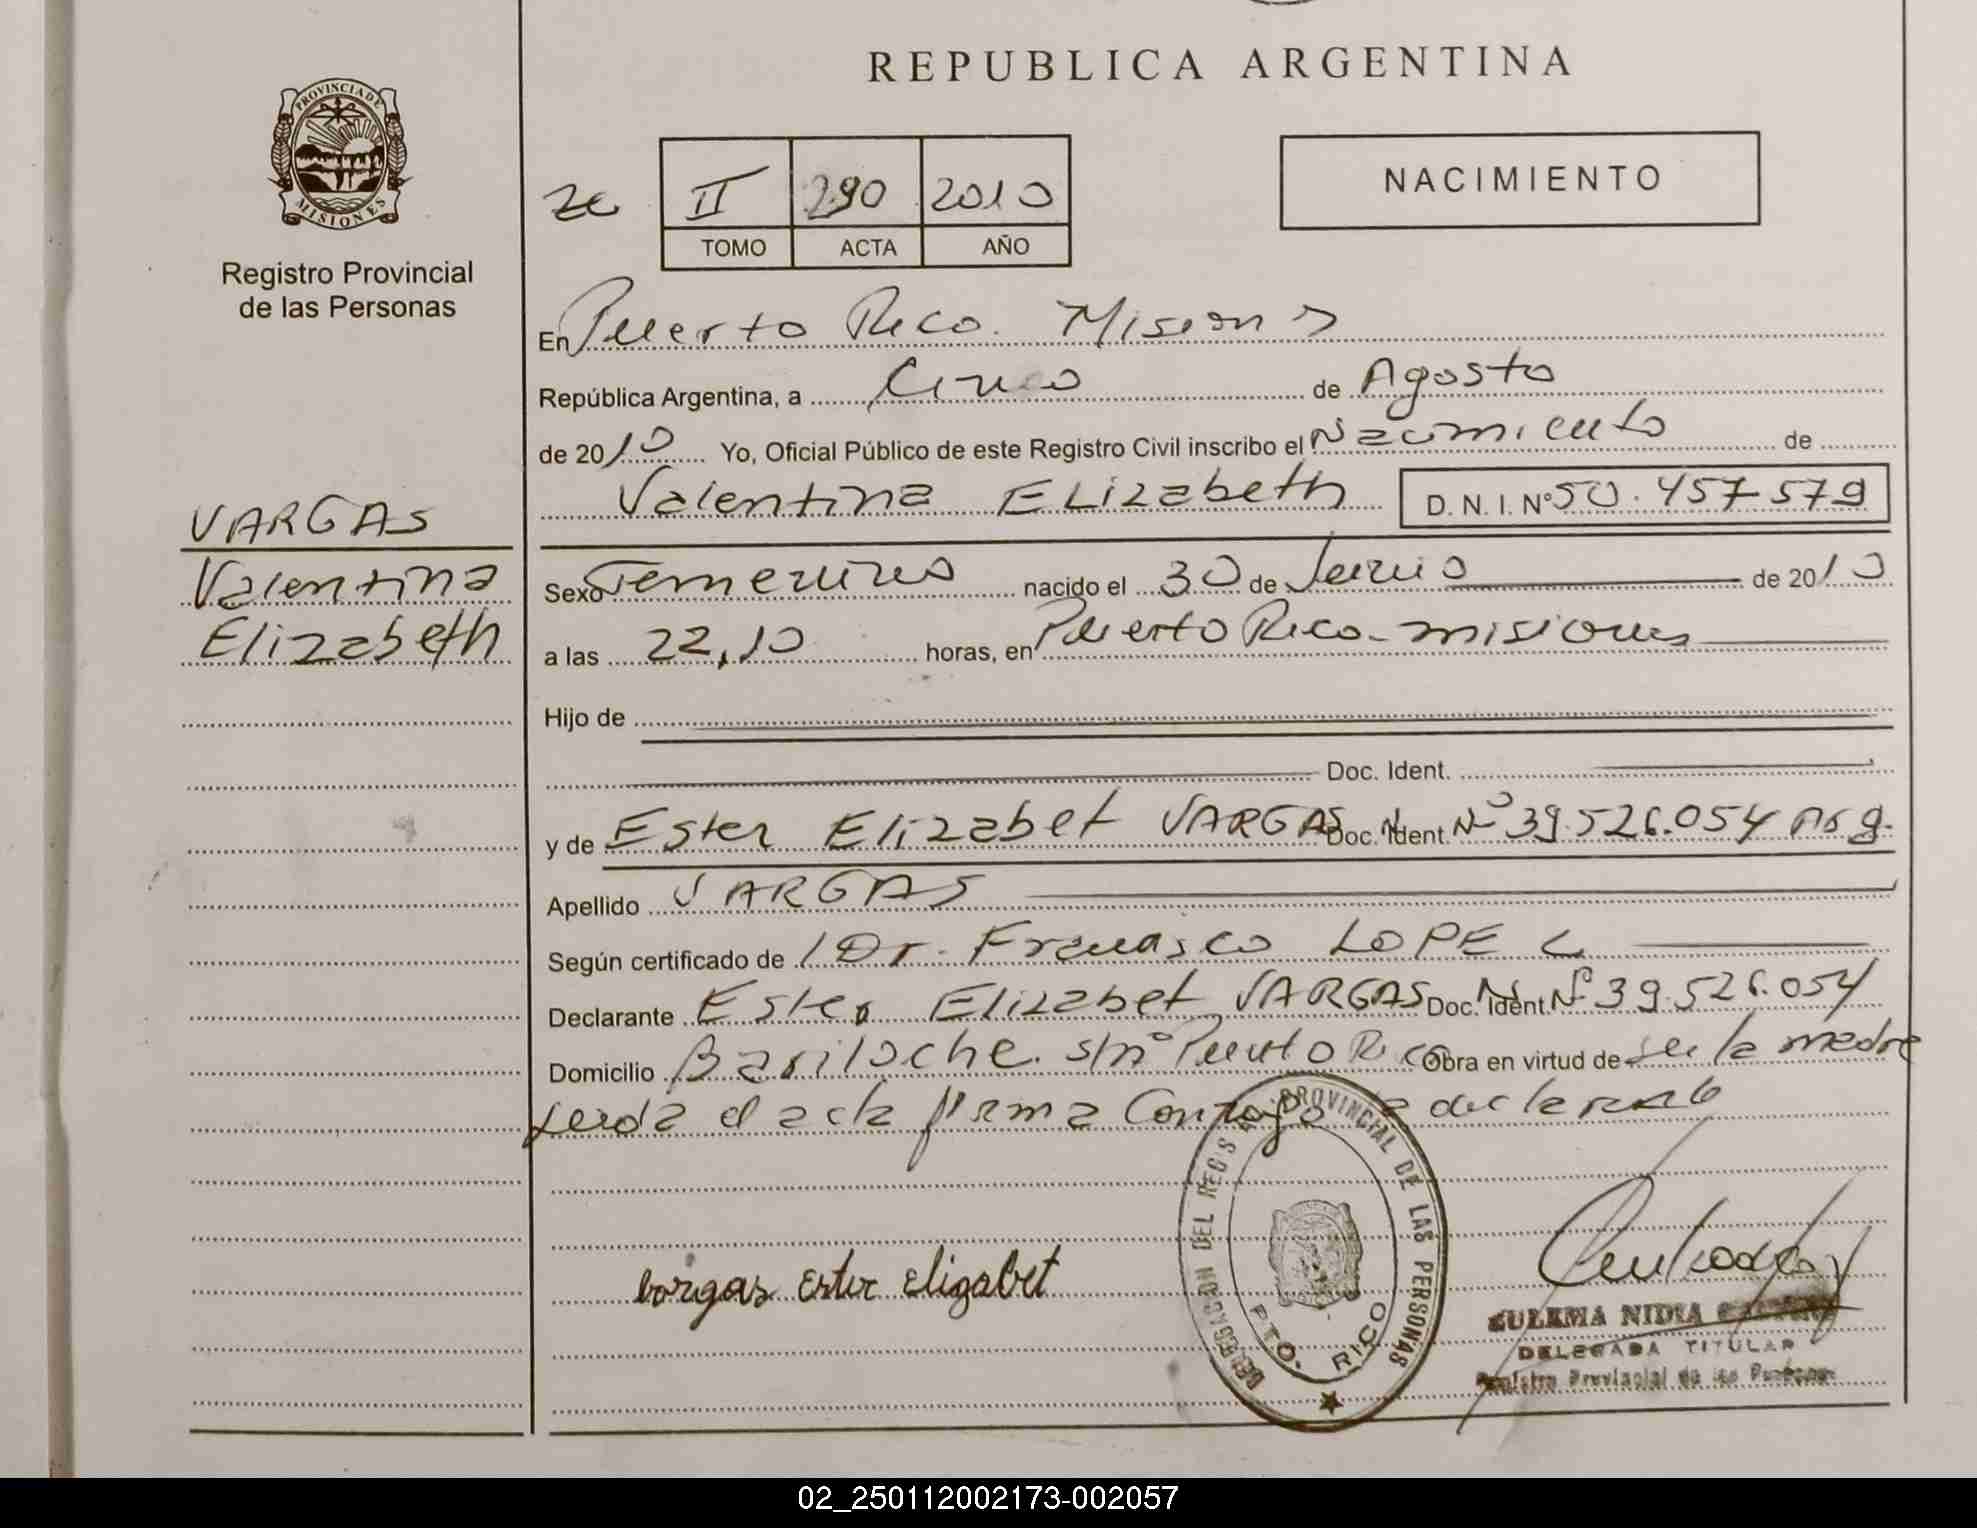 REPUBLICA ARGENTINA
PROVINCIA DE MISIONES
Registro Provincial
de las Personas
II 290 2010
TOMO ACTA AÑO
NACIMIENTO
En Puerto Rico. Misiones
República Argentina, a Cinco de Agosto
de 2010 Yo, Oficial Público de este Registro Civil inscribo el Nacimiento de
Valentina Elizabeth D. N. I. Nº 50.457579
VARGAS
Valentina
Elizabeth
Sexo Femenino nacido el 30 de Junio de 2010
a las 22,10 horas, en Puerto Rico - misiones
Hijo de
Doc. Ident.
y de Ester Elizabet VARGAS Doc. Ident. Nº 39.526.054 Arg.
Apellido VARGAS
Según certificado de Dr. Francisco LOPEZ
Declarante Ester Elizabet VARGAS Doc. Ident. Nº 39.526.054
Domicilio Bariloche s/nº Puerto Rico Obra en virtud de ser la madre
Leida el acta firma Conmigo la declarante
vargas Ester Elizabet
DELEGACION DEL REGISTRO PROVINCIAL DE LAS PERSONAS
PTO. RICO
ZULEMA NIDIA
DELEGADA TITULAR
Registro Provincial de las Personas
02_250112002173-002057